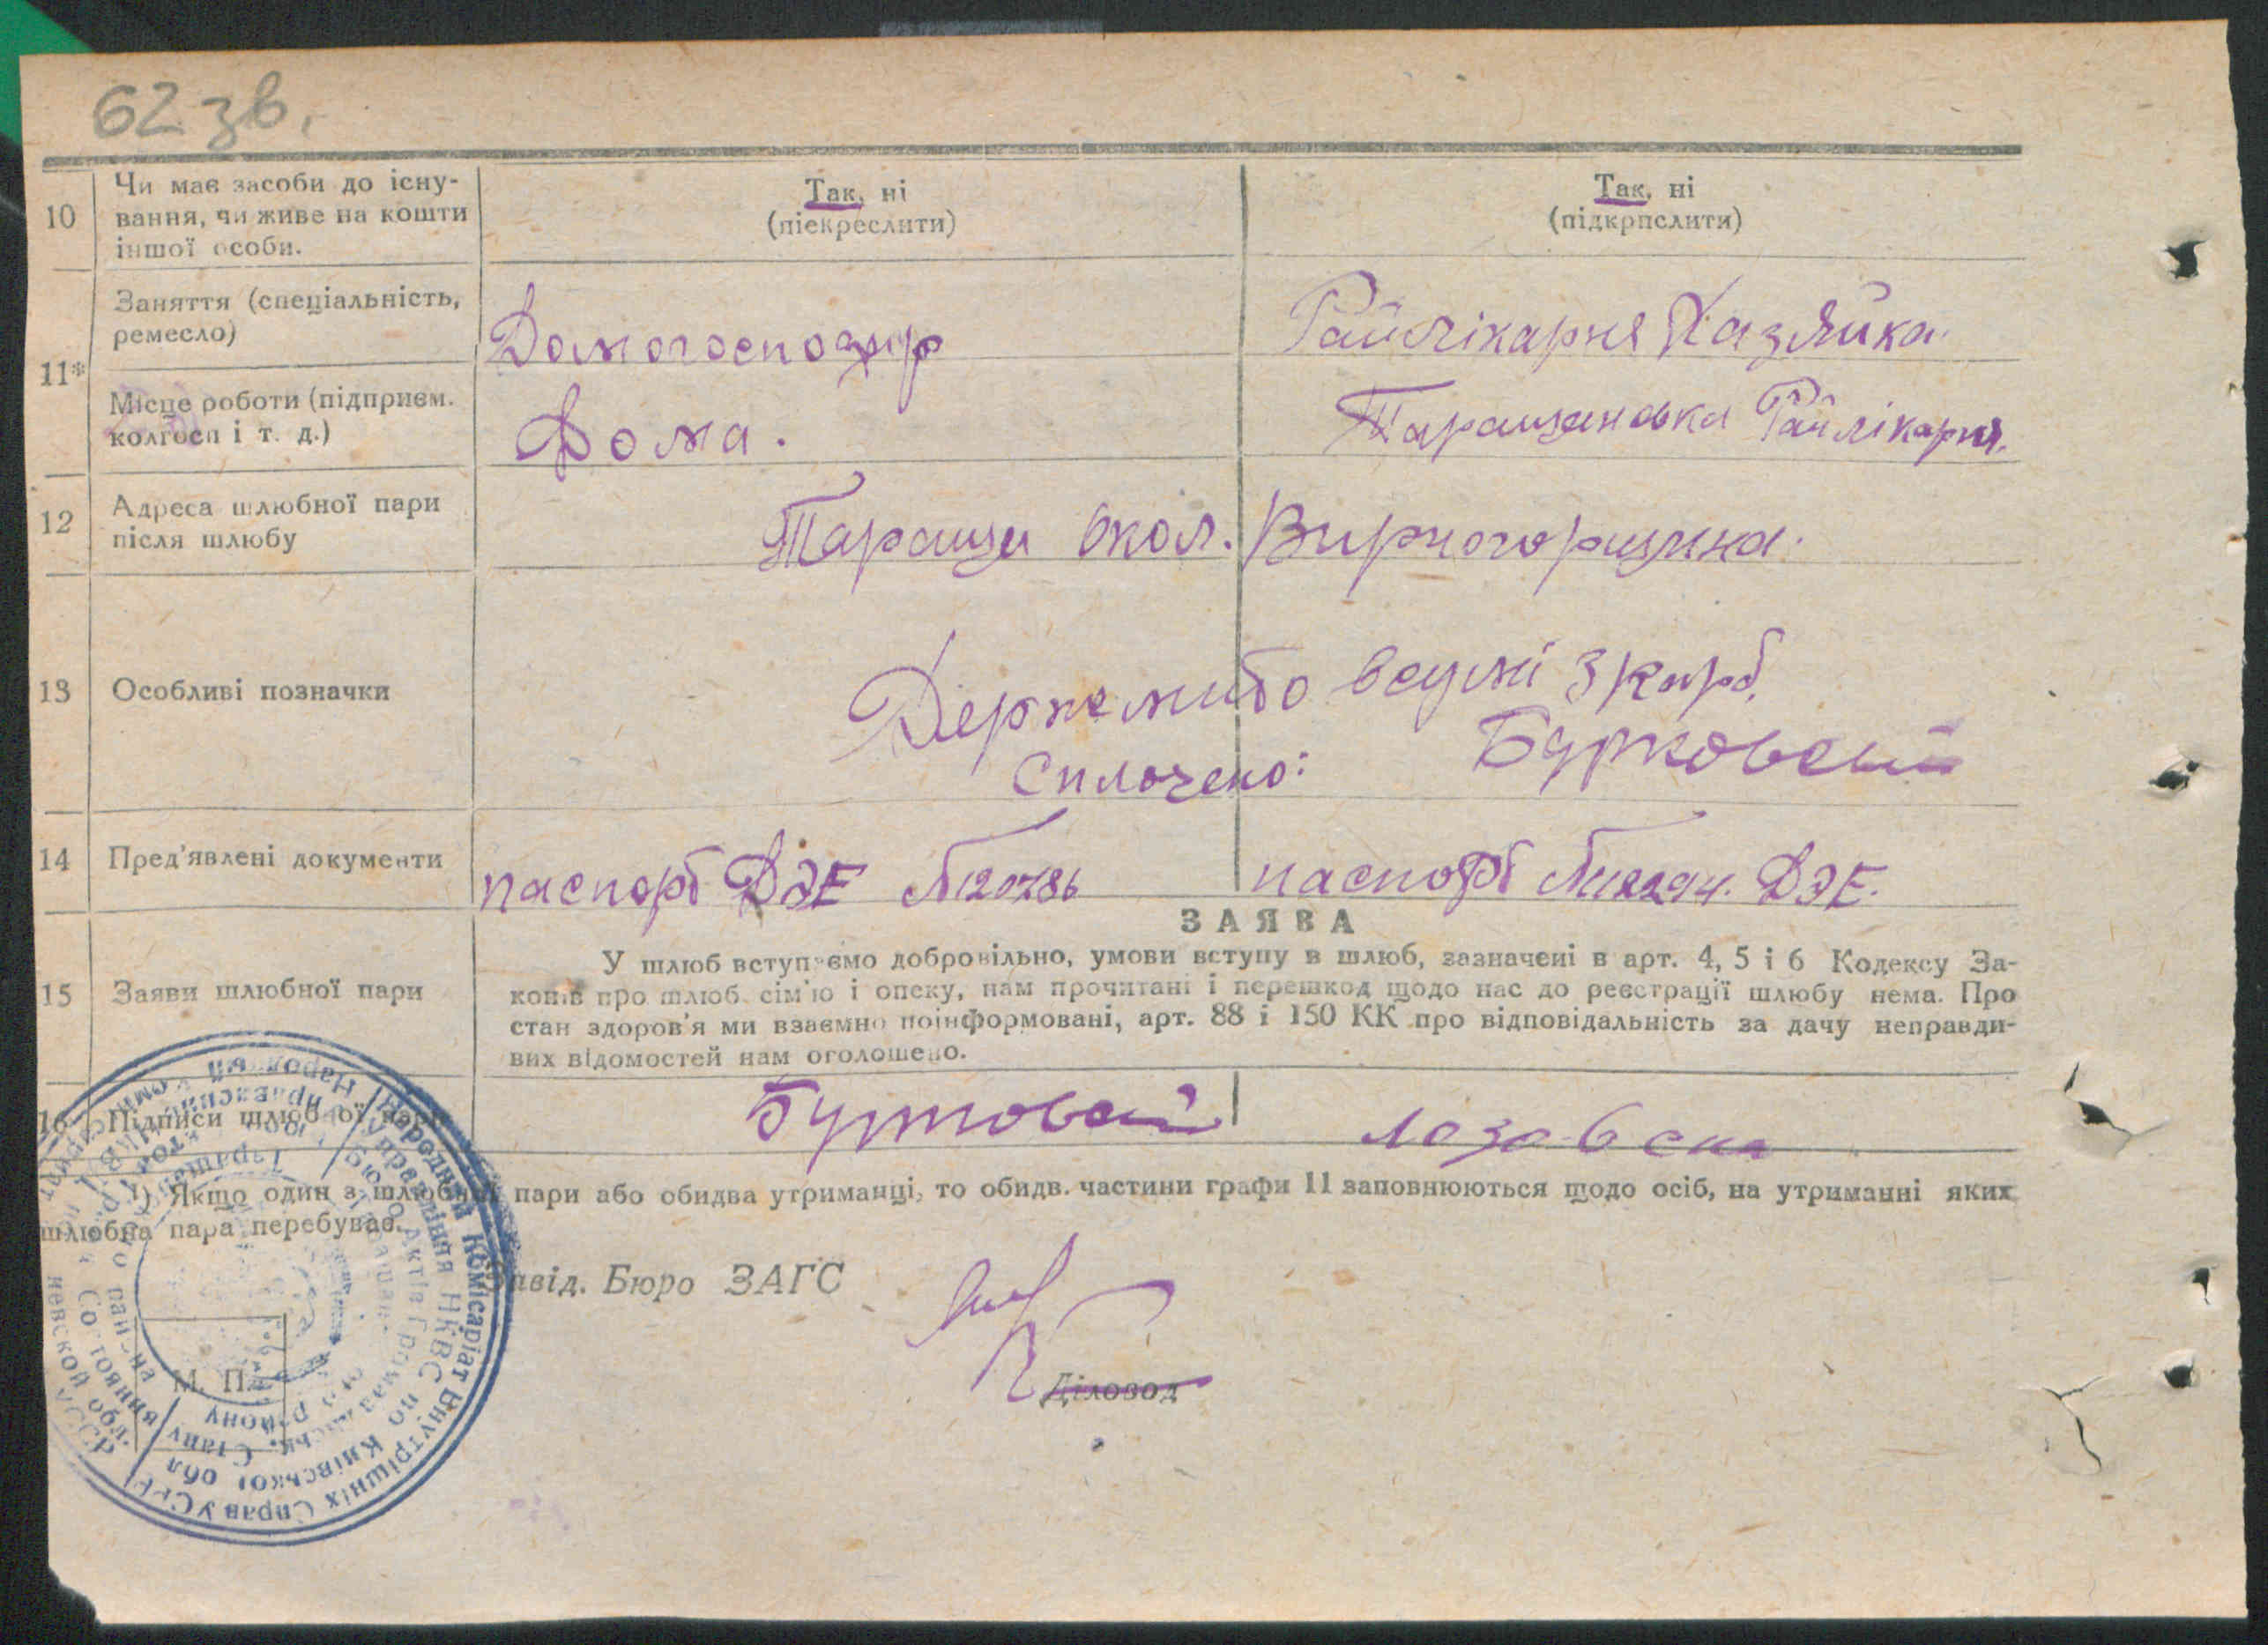 62 зв.
10
Чи має засоби до існу-
вання, чи живе на кошти
іншої особи.
Так, ні
(піекреслити)
Так, ні
(підкрпслити)
11*
Заняття (спеціальність,
ремесло)
Домогосподар
Райлікарня Хазяйка.
Місце роботи (підприєм.
колгосп і т. д.)
Дома.
Таращанська Райлікарня.
12
Адреса шлюбної пари
після шлюбу
Тараща окол.
13
Особливі позначки
Держмито
Сплочено:
14
Пред'явлені документи
паспорт ДЗЕ
паспорт ДЗЕ.
15
Заяви шлюбної пари
ЗАЯВА
У шлюб вступаємо добровільно, умови вступу в шлюб, зазначені в арт. 4, 5 і 6 Кодексу За-
конів про шлюб, сім'ю і опеку, нам прочитані і перешкод щодо нас до реєстрації шлюбу нема. Про
стан здоров'я ми взаємно поінформовані, арт. 88 і 150 КК про відповідальність за дачу неправди-
вих відомостей нам оголошено.
16
Підписи шлюбної пари
Лозовська
¹) Якщо один з шлюбної пари або обидва утриманці, то обидв. частини графи 11 заповнюються щодо осіб, на утриманні яких
шлюбна пара перебуває.
Завід. Бюро ЗАГС
М. П.
Діловод
Народний Комісаріат Внутрішніх Справ УСРР
Управління НКВС по Київській обл